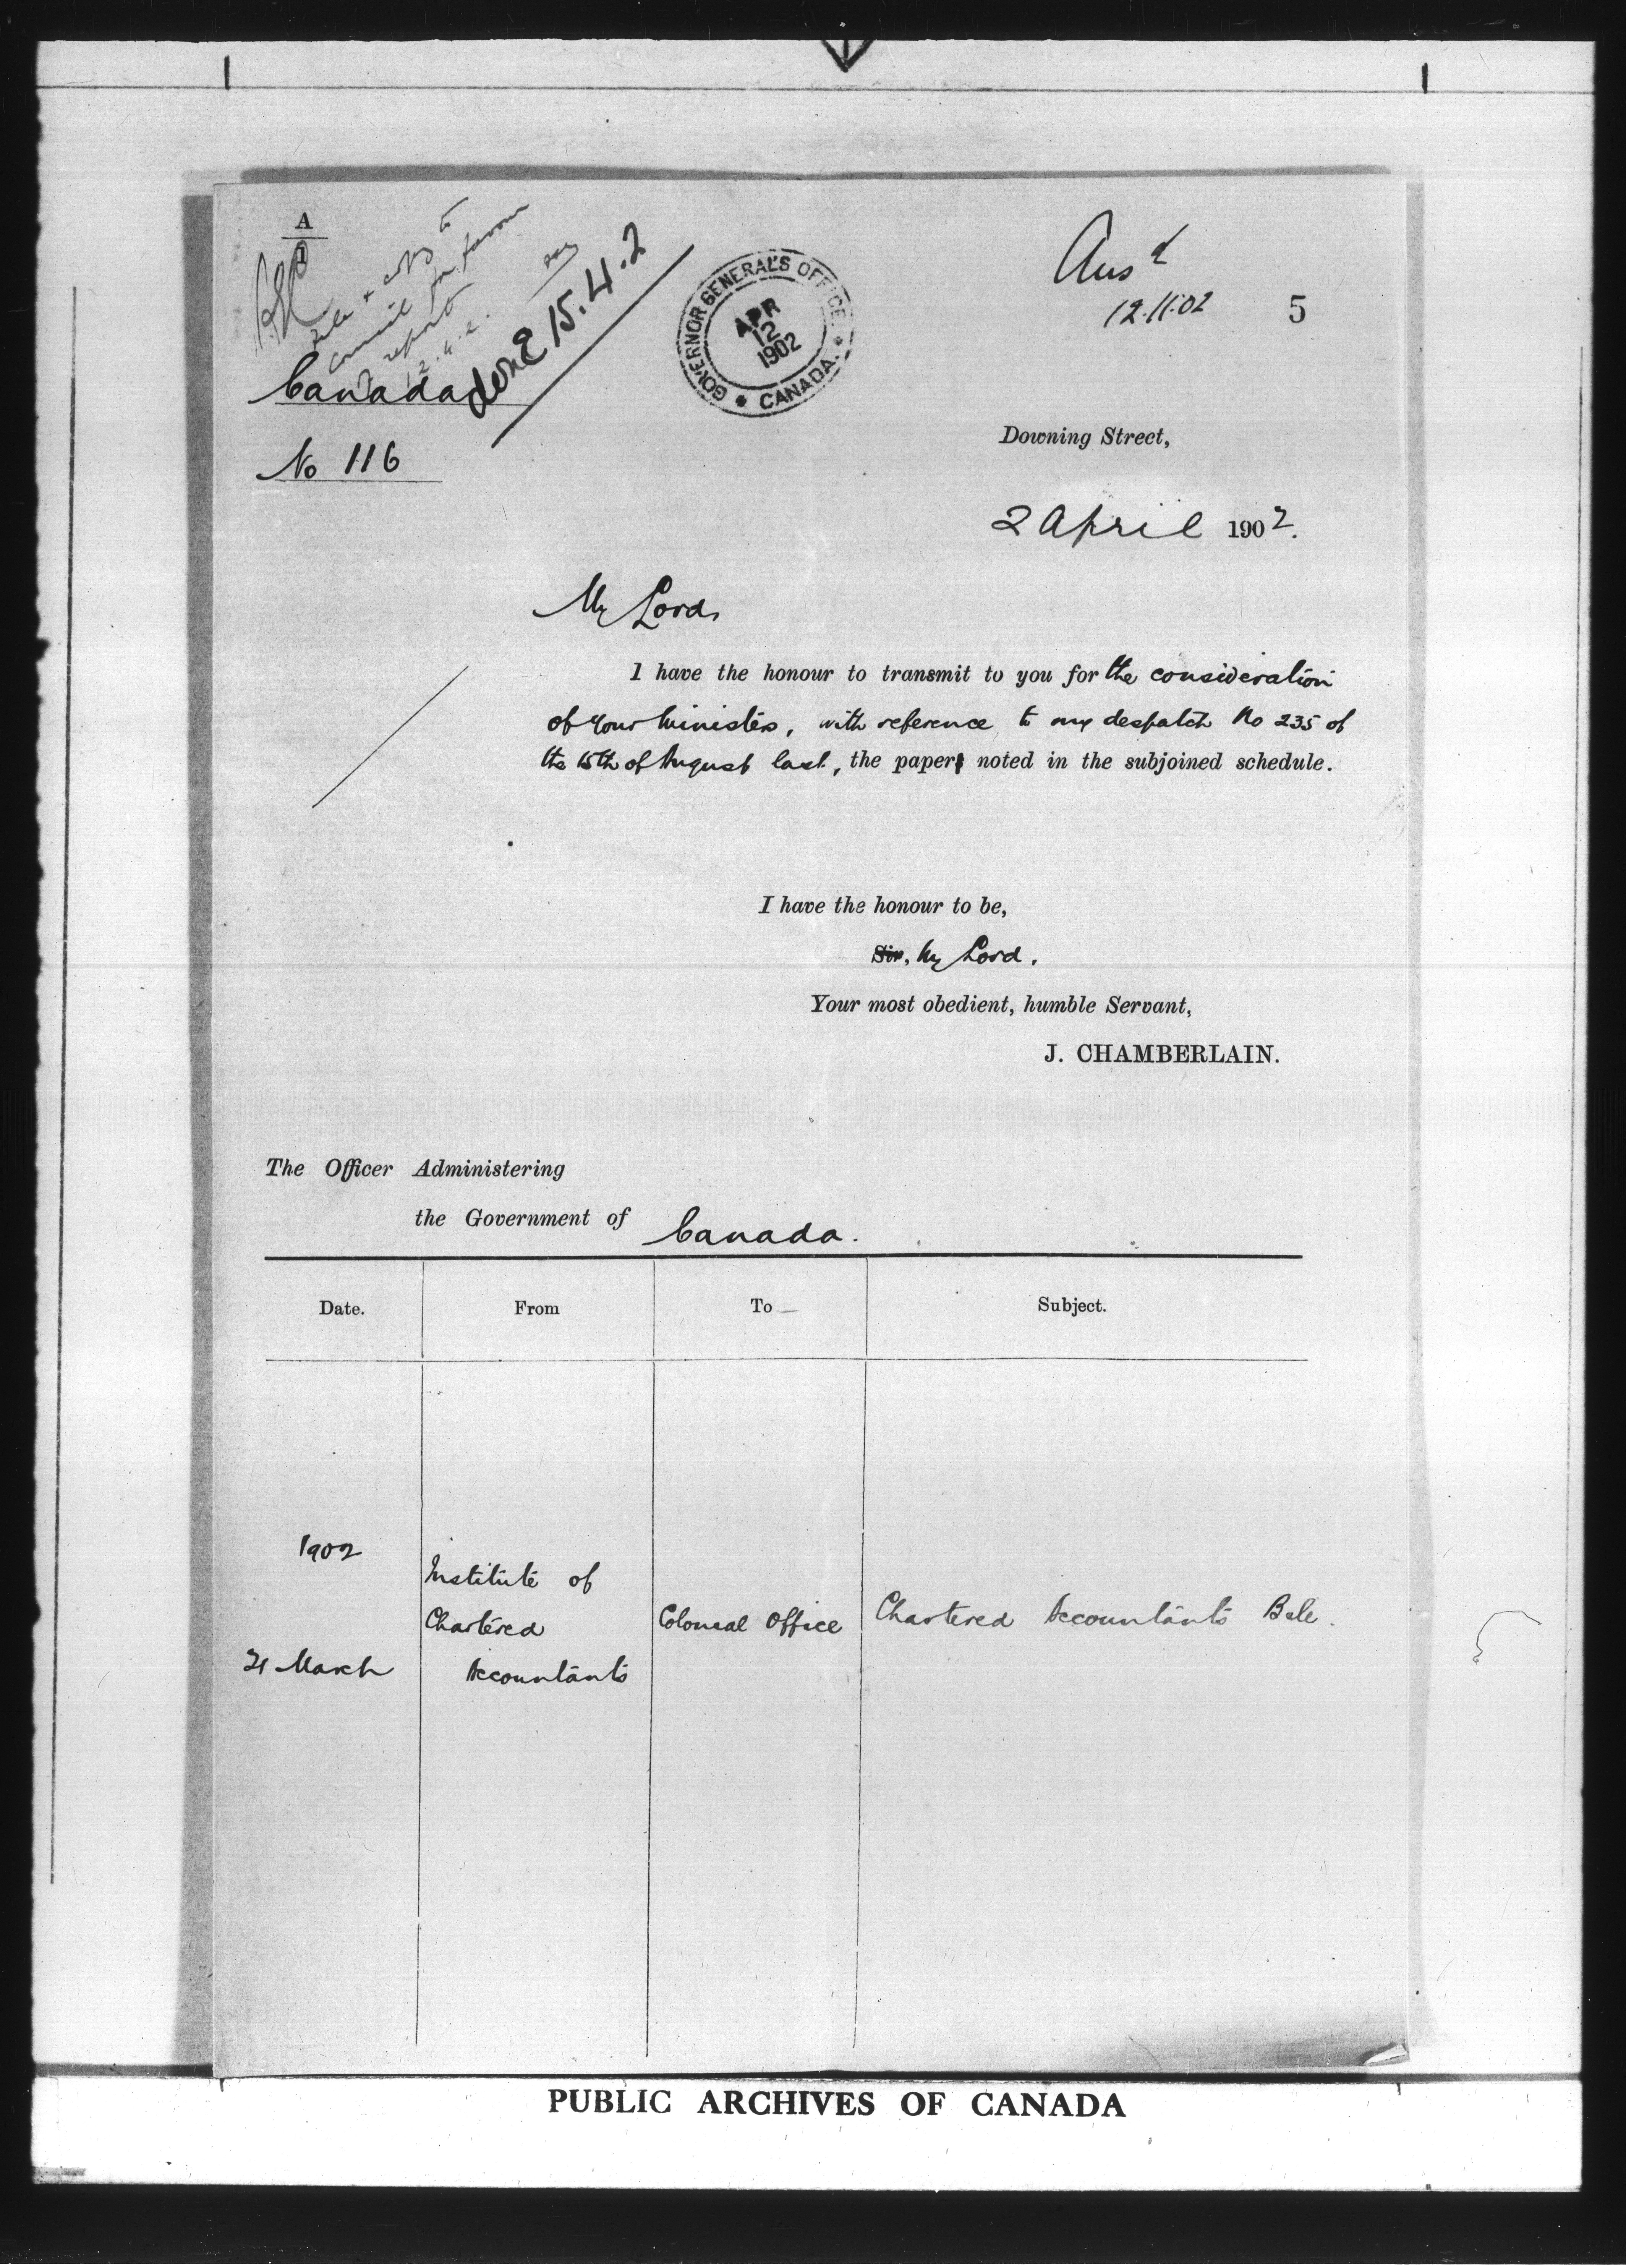 A
File & copy to
Council for favour
of report
12.4.2.
done 15.4.2
GOVERNOR GENERAL'S OFFICE.
APR
12
1902
* CANADA. *
Ansd
12.11.02
5
Canada
No 116
Downing Street,
2 April 1902.
My Lord,
I have the honour to transmit to you for the consideration
of your Ministers, with reference to my despatch No 235 of
the 15th of August last, the paper noted in the subjoined schedule.
I have the honour to be,
Sir, My Lord,
Your most obedient, humble Servant,
J. CHAMBERLAIN.
The Officer Administering
the Government of Canada.
Date. From To Subject.
1902
Institute of
Chartered Colonial Office Chartered Accountants Bill.
21 March Accountants
PUBLIC ARCHIVES OF CANADA